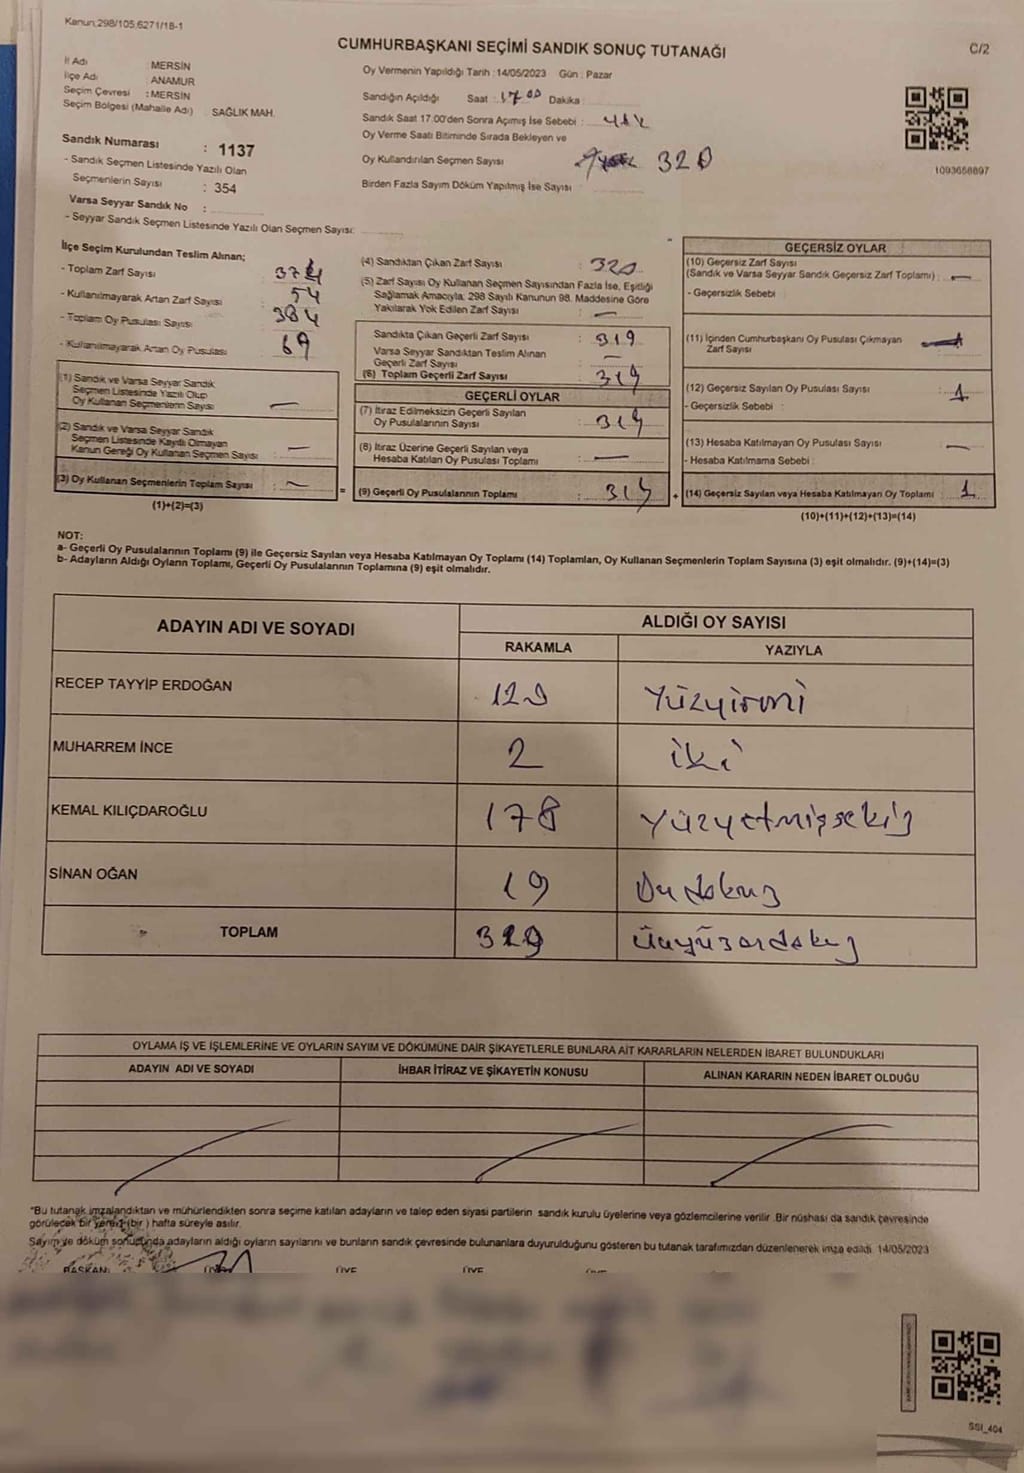 Kanun:298/105,6271/18-1
CUMHURBAŞKANI SEÇİMİ SANDIK SONUÇ TUTANAĞI
C/2
İl Adı : MERSİN
İlçe Adı : ANAMUR
Seçim Çevresi : MERSİN
Seçim Bölgesi (Mahalle Adı) SAĞLIK MAH.
Sandık Numarası : 1137
- Sandık Seçmen Listesinde Yazılı Olan
Seçmenlerin Sayısı : 354
Varsa Seyyar Sandık No :
- Seyyar Sandık Seçmen Listesinde Yazılı Olan Seçmen Sayısı:
Oy Vermenin Yapıldığı Tarih :14/05/2023 Gün : Pazar
Sandığın Açıldığı Saat : 17 00 Dakika :
Sandık Saat 17:00'den Sonra Açımış İse Sebebi :
Oy Verme Saati Bitiminde Sırada Bekleyen ve
Oy Kullandırılan Seçmen Sayısı 320
Birden Fazla Sayım Döküm Yapılmış İse Sayısı :
1093658897
İlçe Seçim Kurulundan Teslim Alınan;
- Toplam Zarf Sayısı : 374
- Kullanılmayarak Artan Zarf Sayısı : 54
- Toplam Oy Pusulası Sayısı : 384
- Kullanılmayarak Artan Oy Pusulası :
(1) Sandık ve Varsa Seyyar Sandık
Seçmen Listesinde Yazılı Olup
Oy Kullanan Seçmenlerin Sayısı : —
(2) Sandık ve Varsa Seyyar Sandık
Seçmen Listesinde Kayıtlı Olmayan
Kanun Gereği Oy Kullanan Seçmen Sayısı : —
(3) Oy Kullanan Seçmenlerin Toplam Sayısı : —
(1)+(2)=(3)
=
(4) Sandıktan Çıkan Zarf Sayısı : 320
(5) Zarf Sayısı Oy Kullanan Seçmen Sayısından Fazla İse, Eşitliği
Sağlamak Amacıyla; 298 Sayılı Kanunun 98. Maddesine Göre
Yakılarak Yok Edilen Zarf Sayısı : —
Sandıkta Çıkan Geçerli Zarf Sayısı : 319
Varsa Seyyar Sandıktan Teslim Alınan
Geçerli Zarf Sayısı : —
(6) Toplam Geçerli Zarf Sayısı : 319
GEÇERLİ OYLAR
(7) İtiraz Edilmeksizin Geçerli Sayılan
Oy Pusulalarının Sayısı : 319
(8) İtiraz Üzerine Geçerli Sayılan veya
Hesaba Katılan Oy Pusulası Toplamı : —
(9) Geçerli Oy Pusulalarının Toplamı : 319
+
GEÇERSİZ OYLAR
(10) Geçersiz Zarf Sayısı
(Sandık ve Varsa Seyyar Sandık Geçersiz Zarf Toplamı) : —
- Geçersizlik Sebebi :
(11) İçinden Cumhurbaşkanı Oy Pusulası Çıkmayan
Zarf Sayısı
(12) Geçersiz Sayılan Oy Pusulası Sayısı : 1
- Geçersizlik Sebebi :
(13) Hesaba Katılmayan Oy Pusulası Sayısı : —
- Hesaba Katılmama Sebebi :
(14) Geçersiz Sayılan veya Hesaba Katılmayan Oy Toplamı : 1
(10)+(11)+(12)+(13)=(14)
NOT:
a- Geçerli Oy Pusulalarının Toplamı (9) ile Geçersiz Sayılan veya Hesaba Katılmayan Oy Toplamı (14) Toplamları, Oy Kullanan Seçmenlerin Toplam Sayısına (3) eşit olmalıdır. (9)+(14)=(3)
b- Adayların Aldığı Oyların Toplamı, Geçerli Oy Pusulalarının Toplamına (9) eşit olmalıdır.
ADAYIN ADI VE SOYADI
ALDIĞI OY SAYISI
RAKAMLA YAZIYLA
RECEP TAYYİP ERDOĞAN 120 Yüzyirmi
MUHARREM İNCE 2 iki
KEMAL KILIÇDAROĞLU 178 Yüzyetmişsekiz
SİNAN OĞAN 19 Ondokuz
TOPLAM 319 Üçyüzondokuz
OYLAMA İŞ VE İŞLEMLERİNE VE OYLARIN SAYIM VE DÖKÜMÜNE DAİR ŞİKAYETLERLE BUNLARA AİT KARARLARIN NELERDEN İBARET BULUNDUKLARI
ADAYIN ADI VE SOYADI İHBAR İTİRAZ VE ŞİKAYETİN KONUSU ALINAN KARARIN NEDEN İBARET OLDUĞU
"Bu tutanak imzalandıktan ve mühürlendikten sonra seçime katılan adayların ve talep eden siyasi partilerin sandık kurulu üyelerine veya gözlemcilerine verilir .Bir nüshası da sandık çevresinde
görülecek bir yere 1 (bir ) hafta süreyle asılır.
Sayım ve döküm sonucunda adayların aldığı oyların sayılarını ve bunların sandık çevresinde bulunanlara duyurulduğunu gösteren bu tutanak tarafımızdan düzenlenerek imza edildi. 14/05/2023
BAŞKAN ÜYE ÜYE ÜYE
SSI_404